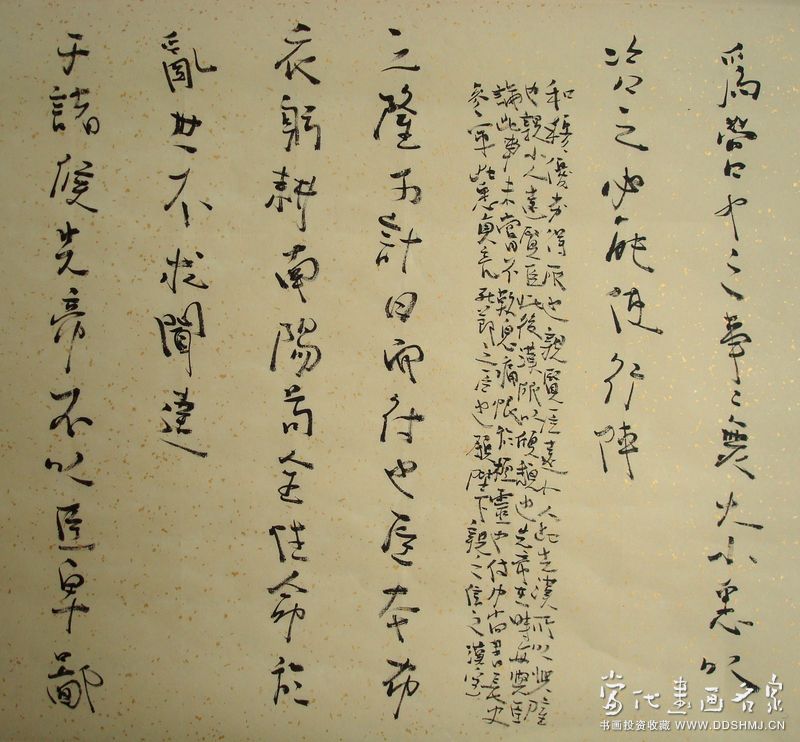 爲營中之事〻無大小悉以
咨之必能使行陣
和穆優劣得所也親賢臣遠小人此先漢所以興隆
也親小人遠賢臣此後漢所以傾頹也先帝在時每與臣
論此事未嘗不歎息痛恨於桓靈也侍中尚書長史
參軍此悉貞亮死節之臣也願陛下親之信之漢室
之隆可計日而待也臣本布
衣躬耕南陽苟全性命於
亂世不求聞達
于諸侯先帝不以臣卑鄙
當代書画名家
书画投资收藏 WWW.DDSHMJ.CN